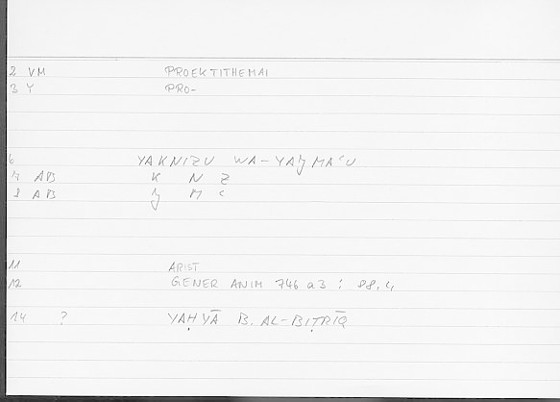 2 VM PROEKTITHEMAI
3 Y PRO-
6 YAKNIZU WA-YAǧMAʿU
7 AB K N Z
8 AB ǧ M ʿ
11 ARIST
12 GENER ANIM 746 a3 : 88,4
14 ? YAḤYĀ B. AL-BIṬRĪQ